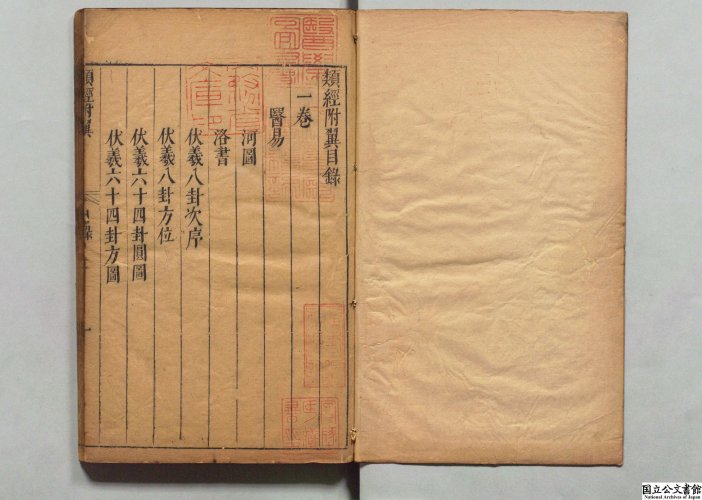 類經附翼目錄
一卷
醫易
河圖
洛書
伏羲八卦次序
伏羲八卦方位
伏羲六十四卦圓圖
伏羲六十四卦方圖
類經附翼
目錄
一
国立公文書館
National Archives of Japan